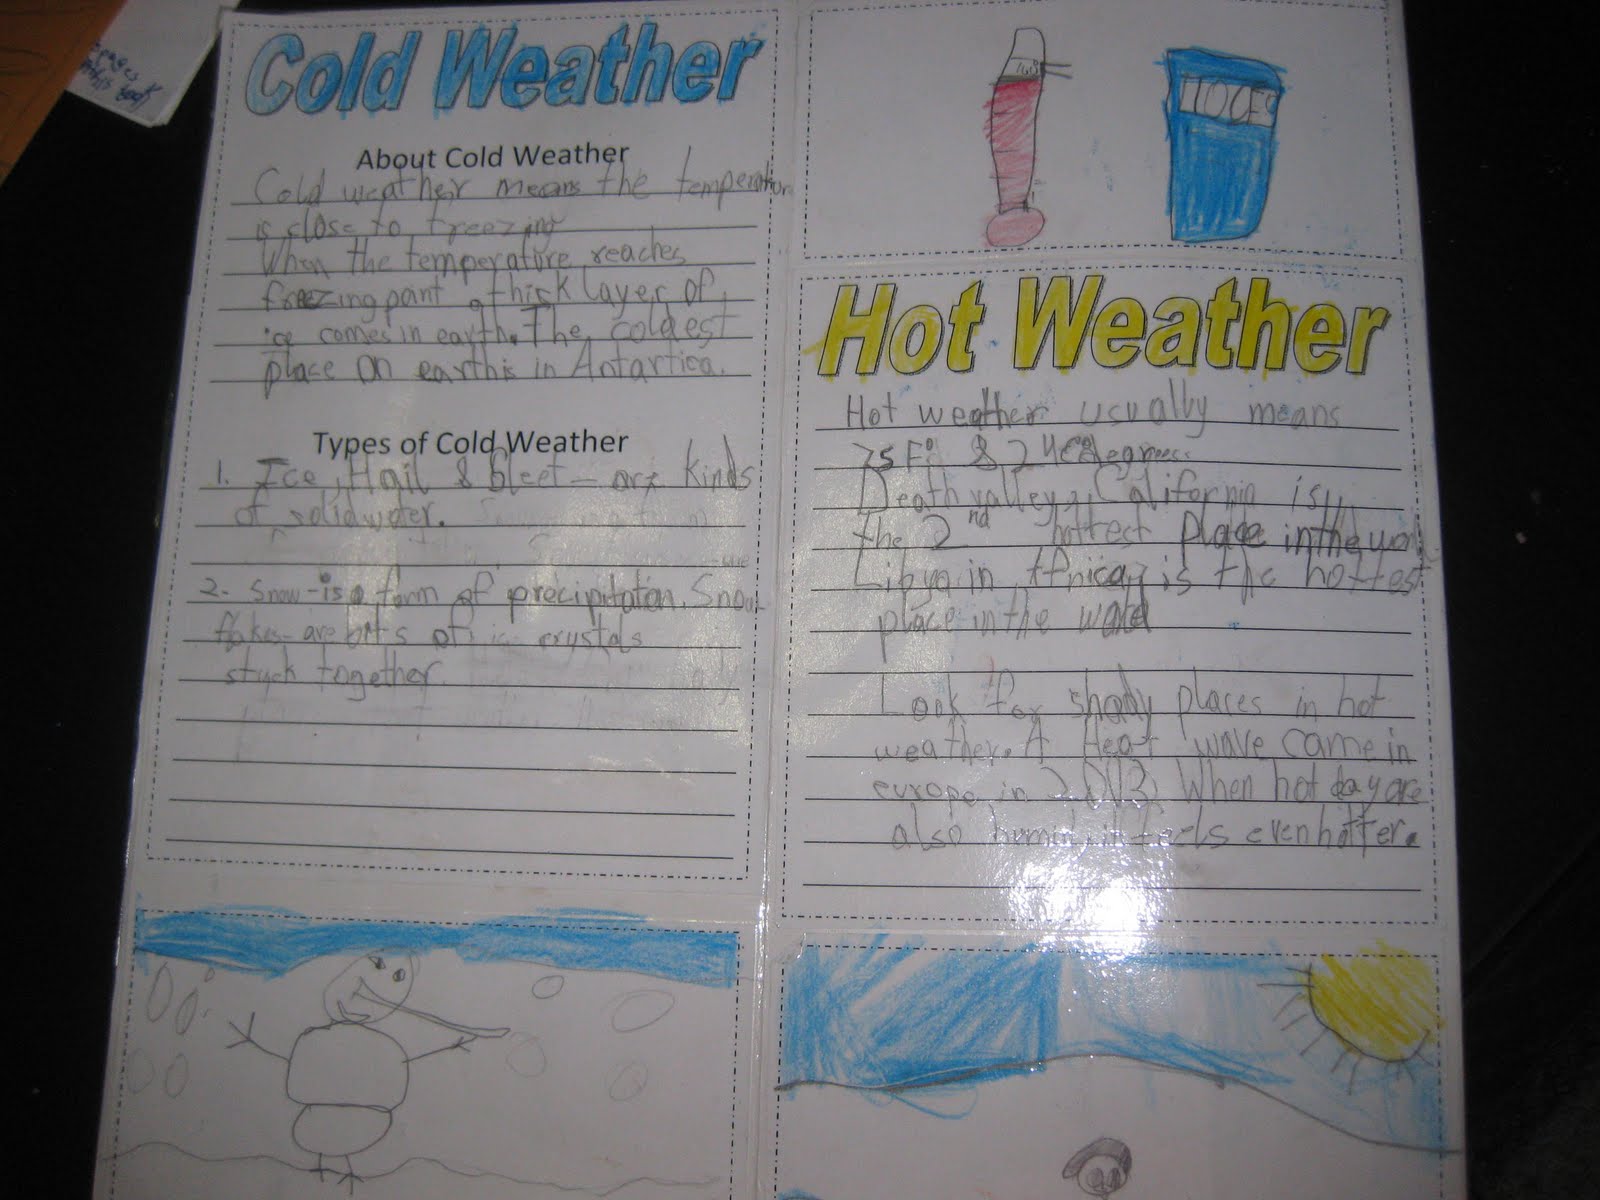 Cold Weather
About Cold Weather
Cold weather means the temperature
is close to freezing
When the temperature reaches
freezing point, thick layer of
ice comes in earth. The coldest
place on earth is in Antartica.
Types of Cold Weather
1. Ice, Hail & Sleet - are kinds
of solid water.
2. Snow - is a form of precipitation. Snow
flakes - are bits of ice crystals
stuck together.
Hot Weather
Hot weather usually means
75 F &
Death valley, California is
the 2nd hottest place in the world
Libya in Africa, is the hottest
place in the world
Look for shady places in hot
weather. A Heat wave came in
europe in When hot day are
also humid, it feels even hotter.